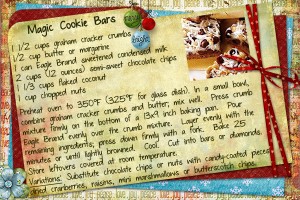 Magic Cookie Bars
1 1/2 cups graham cracker crumbs
1/2 cup butter or margarine
1 can Eagle Brand sweetened condensed milk
2 cups (12 ounces) semi-sweet chocolate chips
1 1/3 cups flaked coconut
1 cup chopped nuts
Preheat oven to 350°F (325°F for glass dish). In a small bowl,
combine graham cracker crumbs and butter; mix well. Press crumb
mixture firmly on the bottom of a 13x9 inch baking pan. Pour
Eagle Brand evenly over the crumb mixture. Layer evenly with the
remaining ingredients; press down firmly with a fork. Bake 25
minutes or until lightly browned. Cool. Cut into bars or diamonds.
Store leftovers covered at room temperature.
Variations: Substitute chocolate chips or nuts with candy-coated pieces,
dried cranberries, raisins, mini marshmallows or butterscotch chips.